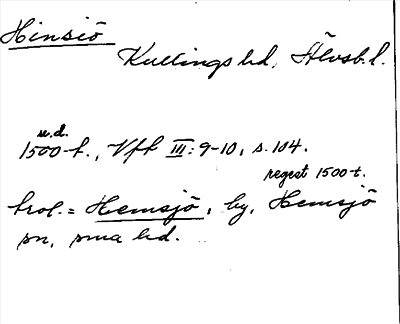 Hinsiö
Kullings hd, Älvsb. l.
u.d.
1500-t., Vft III: 9-10, s. 104.
regest 1500-t.
trol. = Hemsjö, by, Hemsjö
sn, sma hd.